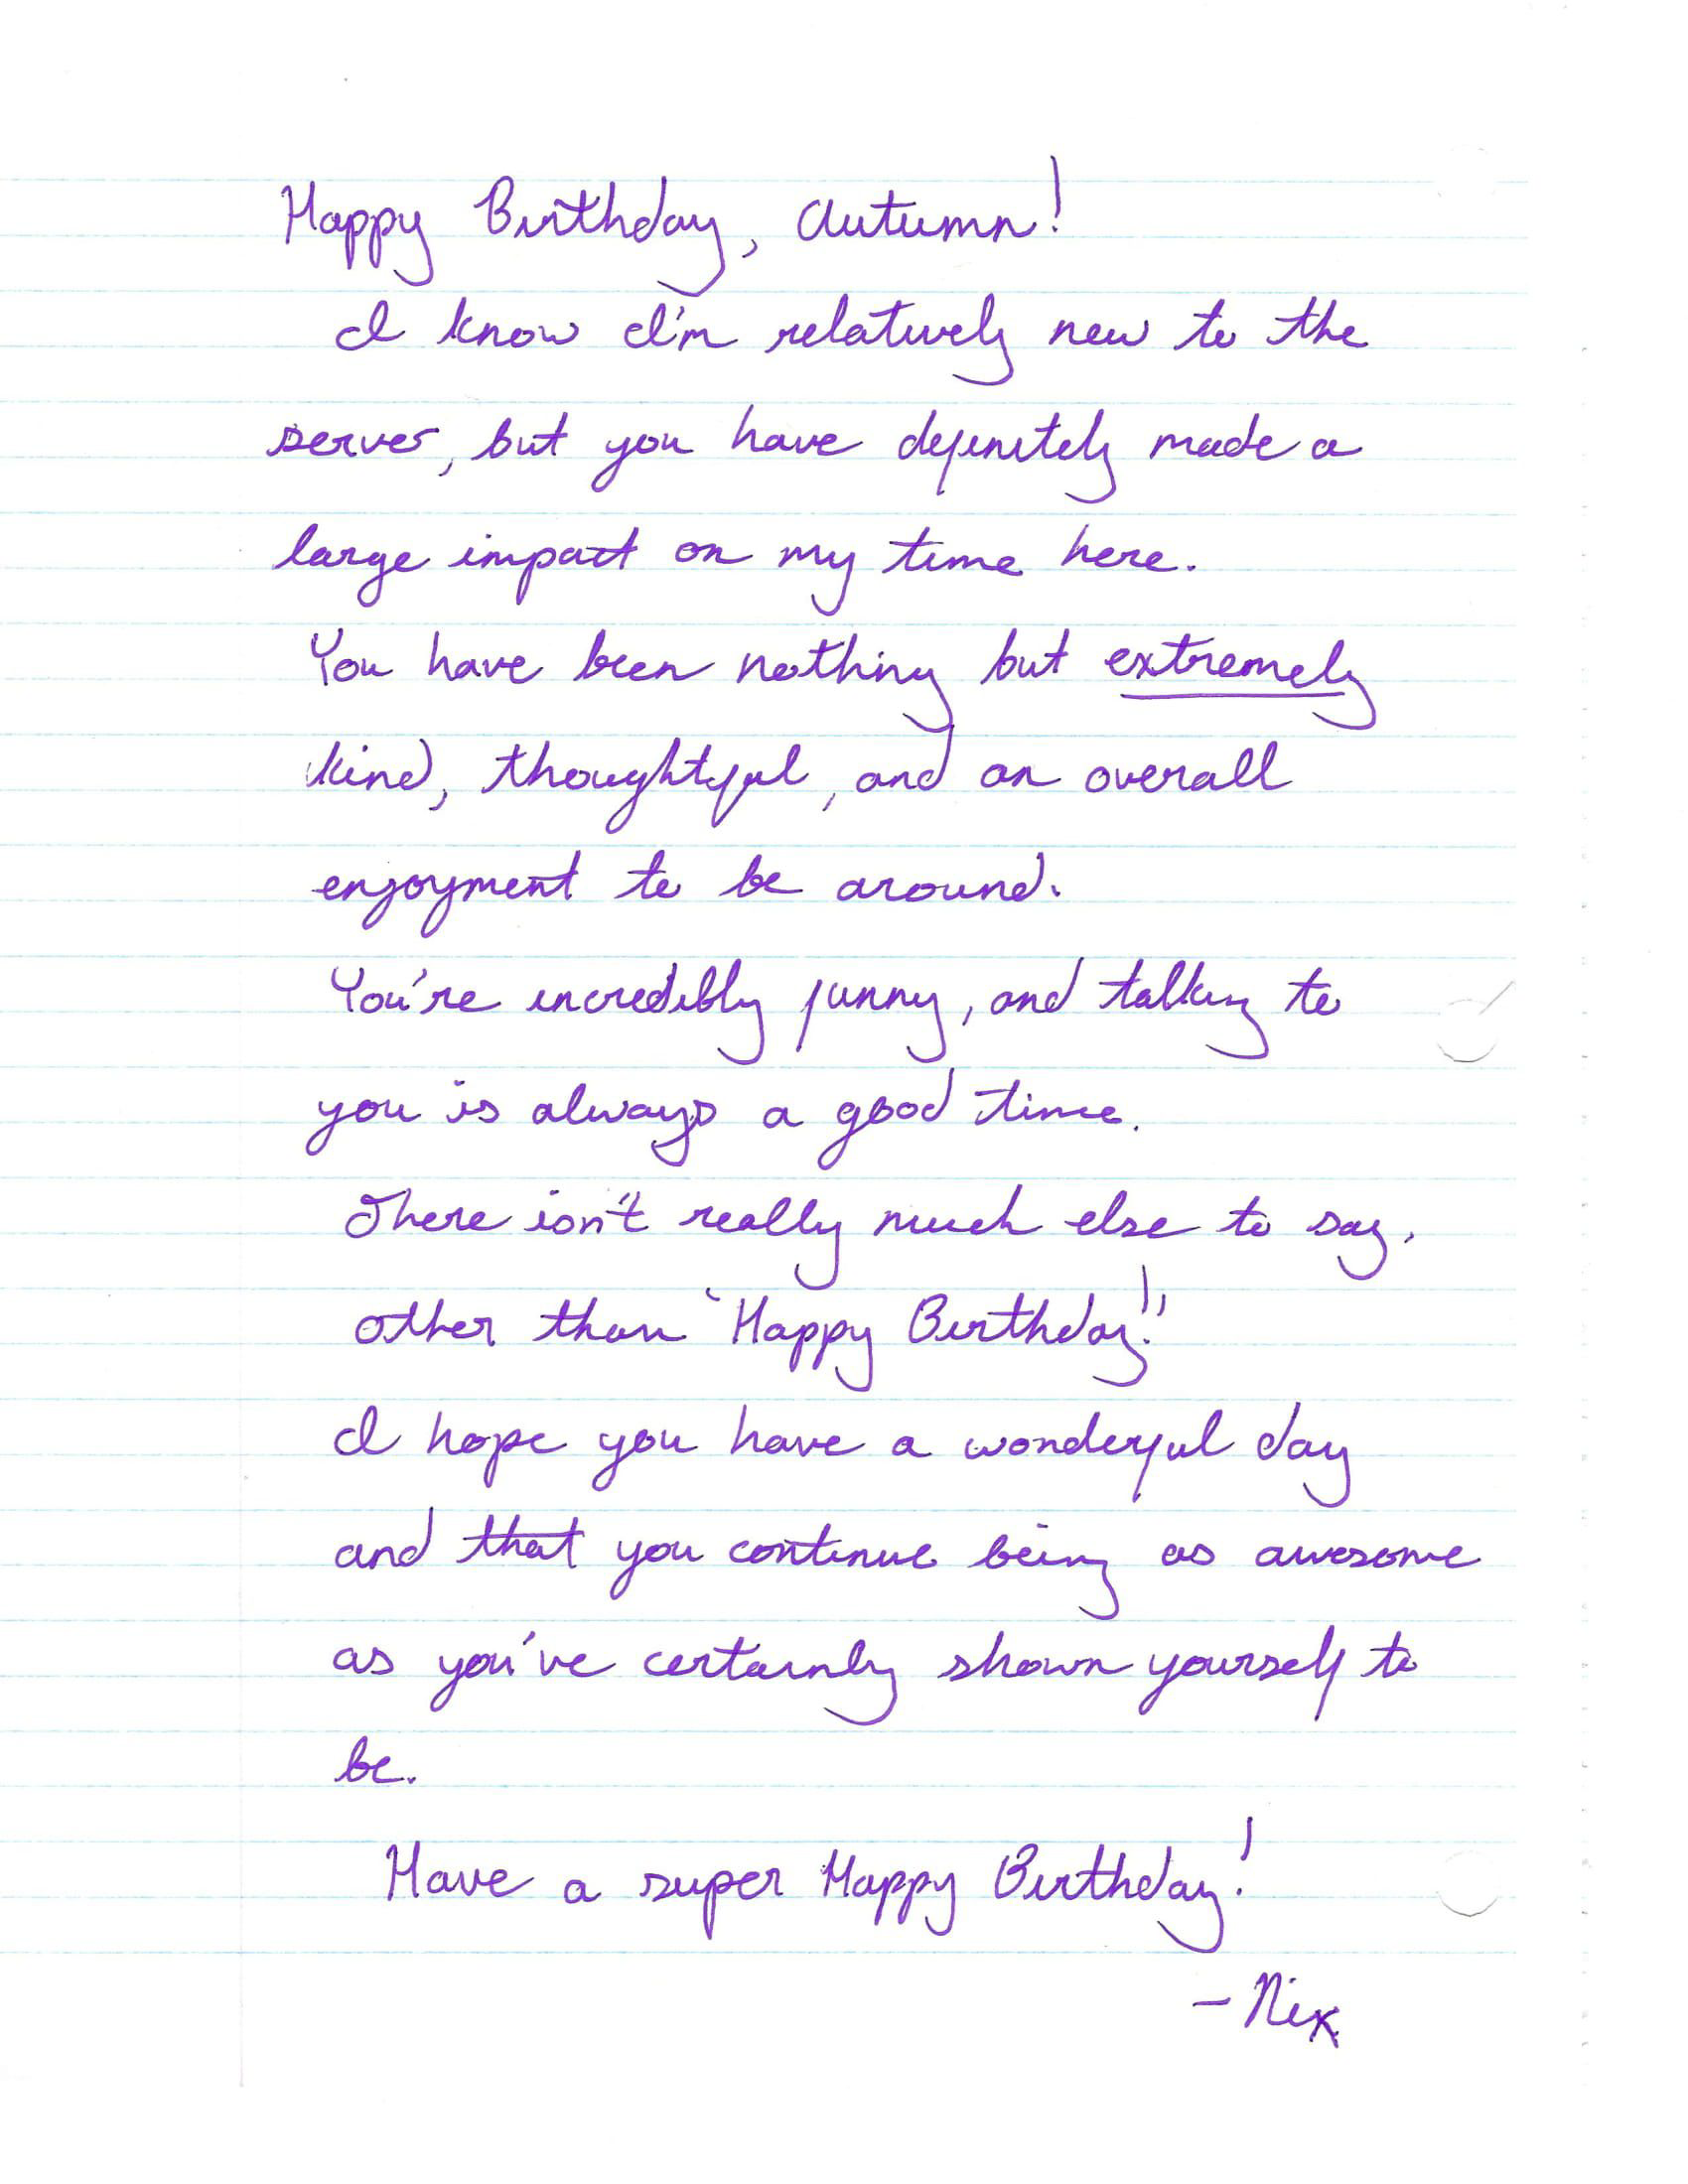 Happy Birthday, Autumn!
I know I'm relatively new to the
server, but you have definitely made a
large impact on my time here.
You have been nothing but extremely
kind, thoughtful, and an overall
enjoyment to be around.
You're incredibly funny, and talking to
you is always a good time.
There isn't really much else to say,
other than "Happy Birthday!"
I hope you have a wonderful day
and that you continue being as awesome
as you've certainly shown yourself to
be.
Have a super Happy Birthday!
- Nix